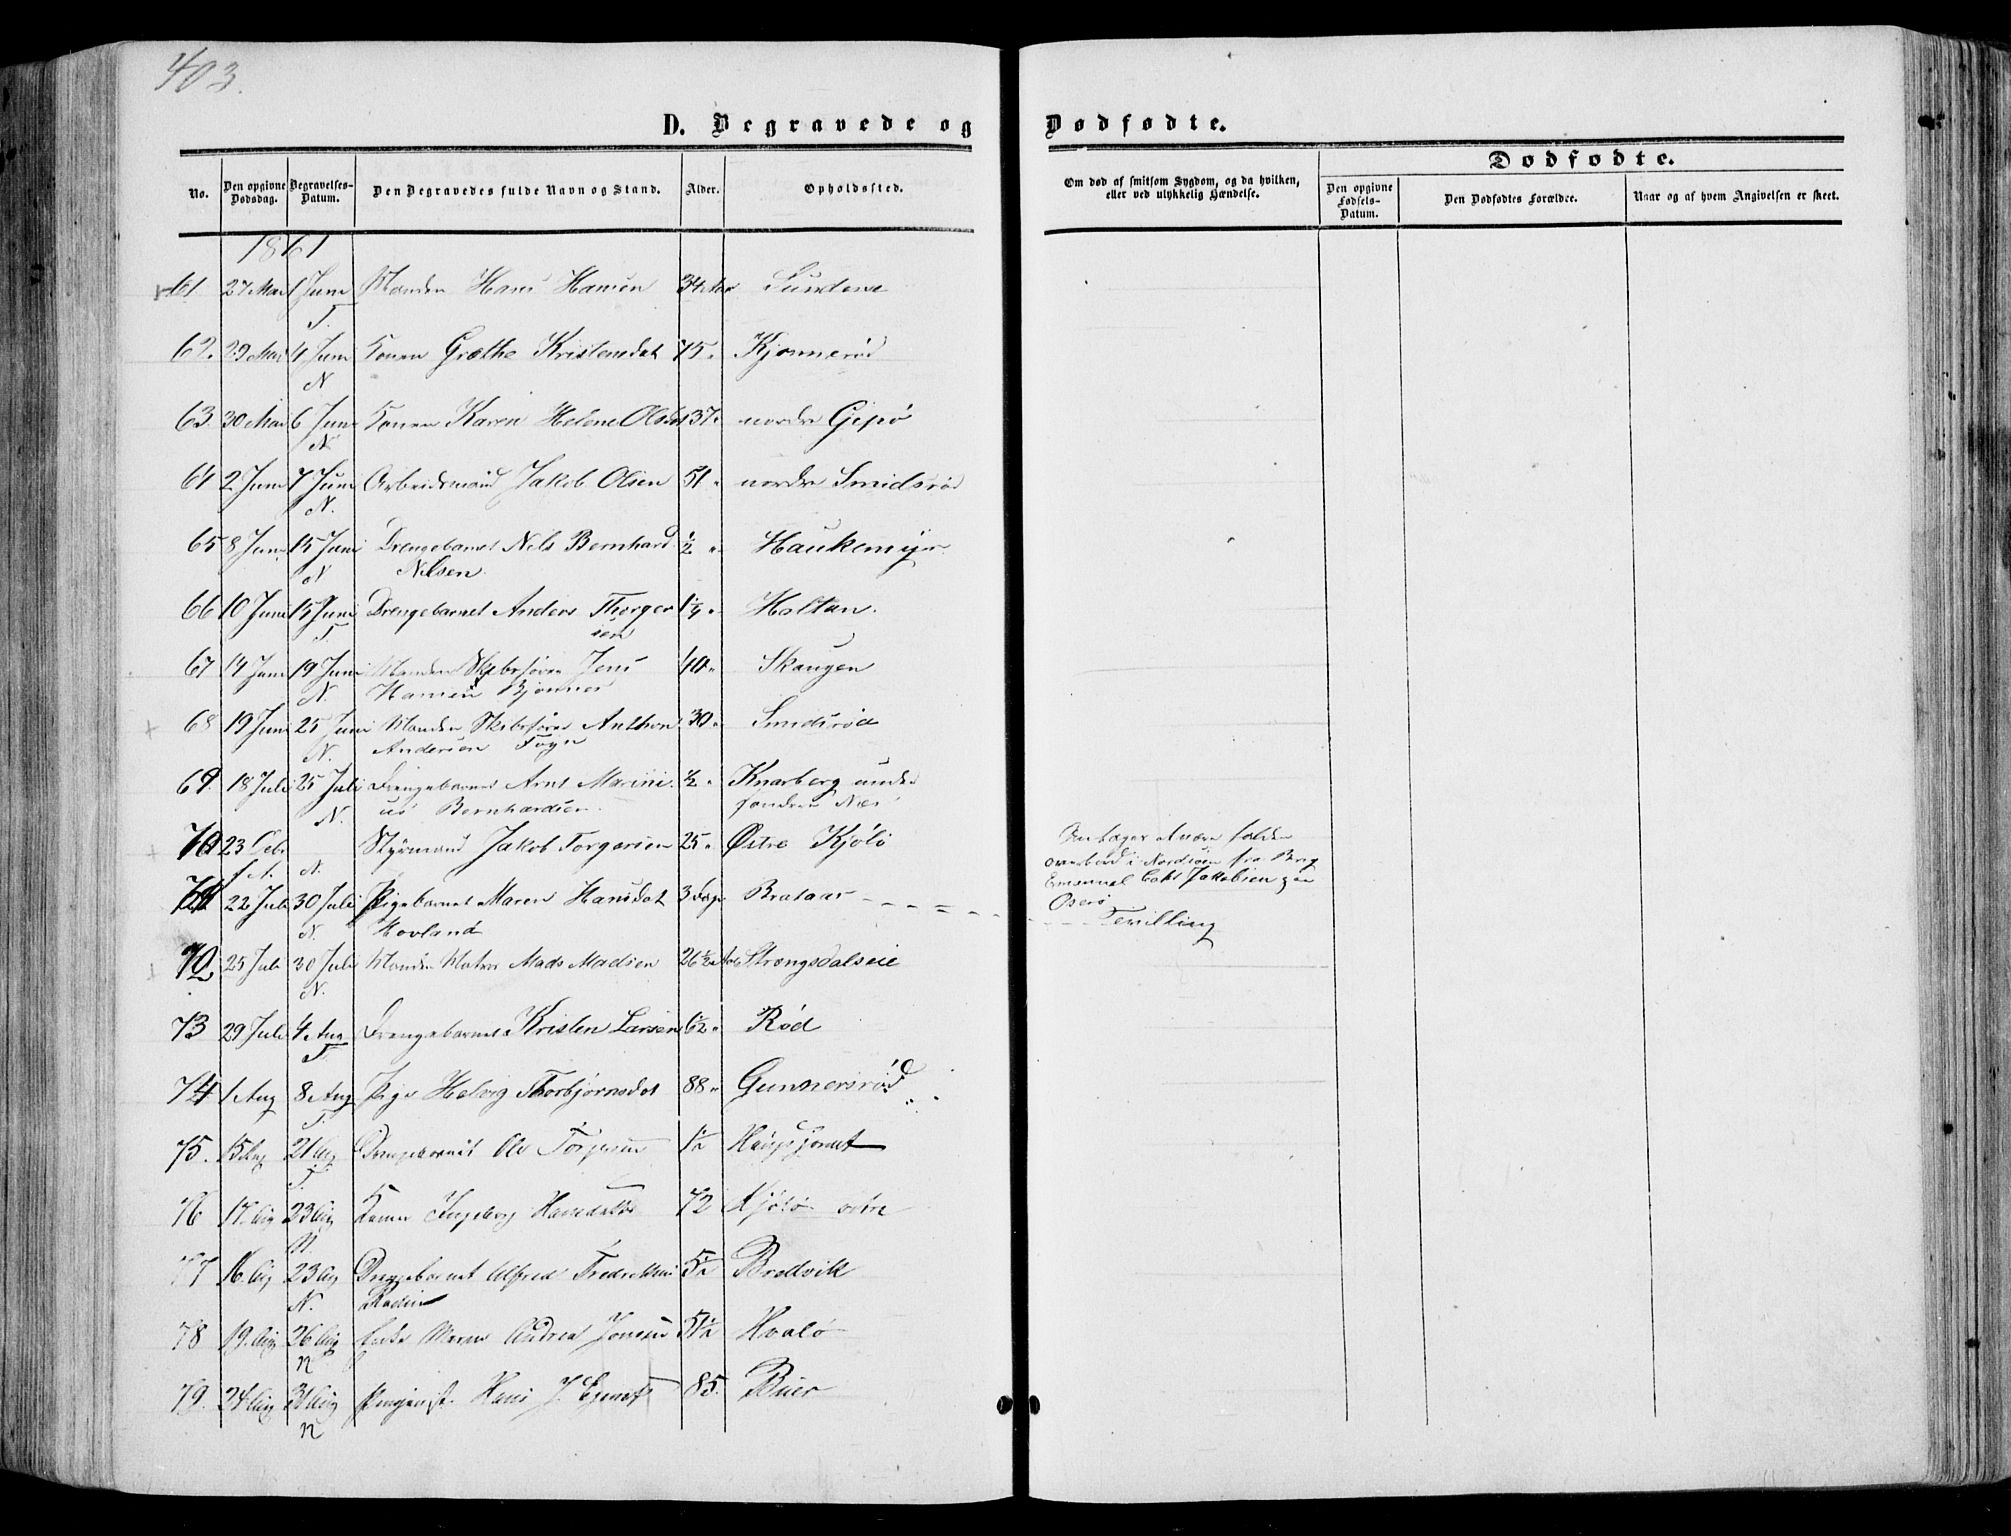 403.
D. Begravede og Dødfødte.
Dødfødte.
No.
Den opgivne Dødsdag.
Begravelses-Datum.
Den Begravedes fulde Navn og Stand.
Alder.
Opholdssted.
Om død af smitsom Sygdom, og da hvilken,
eller ved ulykkelig Hændelse.
Den opgivne Fødsels-Datum.
Den Dødfødtes Forældre.
Naar og af hvem Angivelsen er skeet.
1861
61 27 Mai 1 Juni Manden Hans Hansen 34 Aar Sundene
T.
62. 29 Mai 4 Juni Konen Grethe Kristensdat 75 " Kjønnerød
N
63. 30 Mai 6 Juni Konen Karen Helene Olsdat 37 " nordre Gipø
N.
64 2 Juni 7 Juni Arbeidsmand Jakob Olsen 51 " nordre Smidsrød
N.
65 8 Juni 15 Juni Drengebarnet Nels Bernhard ½ " Haukemyr
N Nilsen.
66 10 Juni 15 Juni Drengebarnet Anders Thorger 1¼ " Holtan.
T. sen
67 14 Juni 19 Juni Manden Skibsfører Jens 40 " Skaugen
N. Hansen Bjønnes
68 19 Juni 25 Juni Manden Skibsfører Anthon 30 " Smidsrød
N. Andersen Fogn
69. 18 Juli 25 Juli Drengebarnet Arnt Marini ½ " Knarberg under
N. us Bernhardsen søndre Nes
70 23 Febr Styrmand Jakob Torgersen 25 " Østre Kjølø
N. overbord i Nordsøen fra Brig
71 22 Juli 30 Juli Pigebarnet Maren Hansdat 3 Dage Brataas
N. Hovland Tvilling
72 25 Juli 30 Juli Manden Matros Mads Madsen 26½ Aar Strengsdalseie
N.
73 29 Juli 4 Aug Drengebarnet Kristen Larsen 6½ " Rød
T.
74 1 Aug 8 Aug Pige Helvig Thorbjørnsdat 88 " Gunnersrød
T.
75. 15 Aug 21 Aug Drengebarnet Ole Torgersen 1½
T.
76 17. Aug 23 Aug Konen Ingeborg Hansdatter 72 Kjølø østre
N.
77 16. Aug 23 Aug Drengebarnet Alfred Fredriksen 5½ Bredvik
N.
78 19. Aug 26 Aug Enke Maren Andrea Jonsen 51½ Hvalø
N
79. 24 Aug 31 Aug Hans J. 85. Buer
N